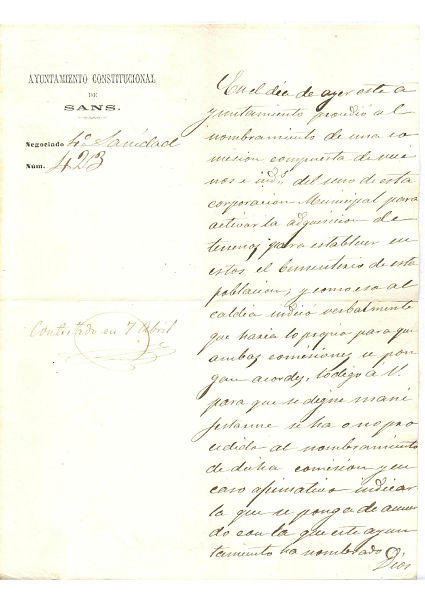 AYUNTAMIENTO CONSTITUCIONAL
DE
SANS.
Negociado 4º Sanidad
Núm. 423
Contestado en 7 Abril
En el dia de ayer este a
yuntamiento procedió al
nombramiento de una co
mision compuesta de veci
nos e inds. del seno de esta
corporacion Municipal para
activar la adquisicion de
terrenos para establecer en
estos el Cementerio de esta
poblacion; y como esa al
caldia indicó verbalmente
que haria lo propio para que
ambas comisiones se pon
gan acordes, lo digo a V.
para que se digne mani
festarme si ha o no pro
cedido al nombramiento
de dicha comision y en
caso afirmativo indicar
la que se ponga de acuer
do con la que este ayun
tamiento ha nombrado
Dios